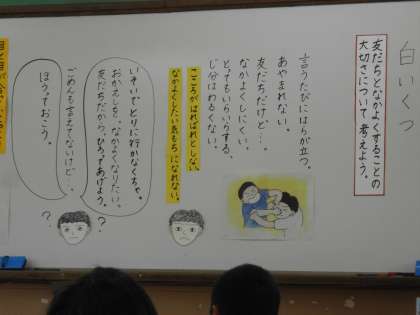 白いくつ
友だちとなかよくすることの
大切さについて考えよう。
言うたびにはらが立つ。
あやまれない。
友だちだけど…。
なかよくしにくい。
とってもいらいらする。
じ分はわるくない。
こころがはればれとしない。
なかよくしたい気もちになれない。
いそいでとりに行かなくちゃ。
おかえしを、なかよくなりたい。
友だちだから、ひろってあげよう。
?
ごめんも言えてないけど…。
ほうっておこう。
?